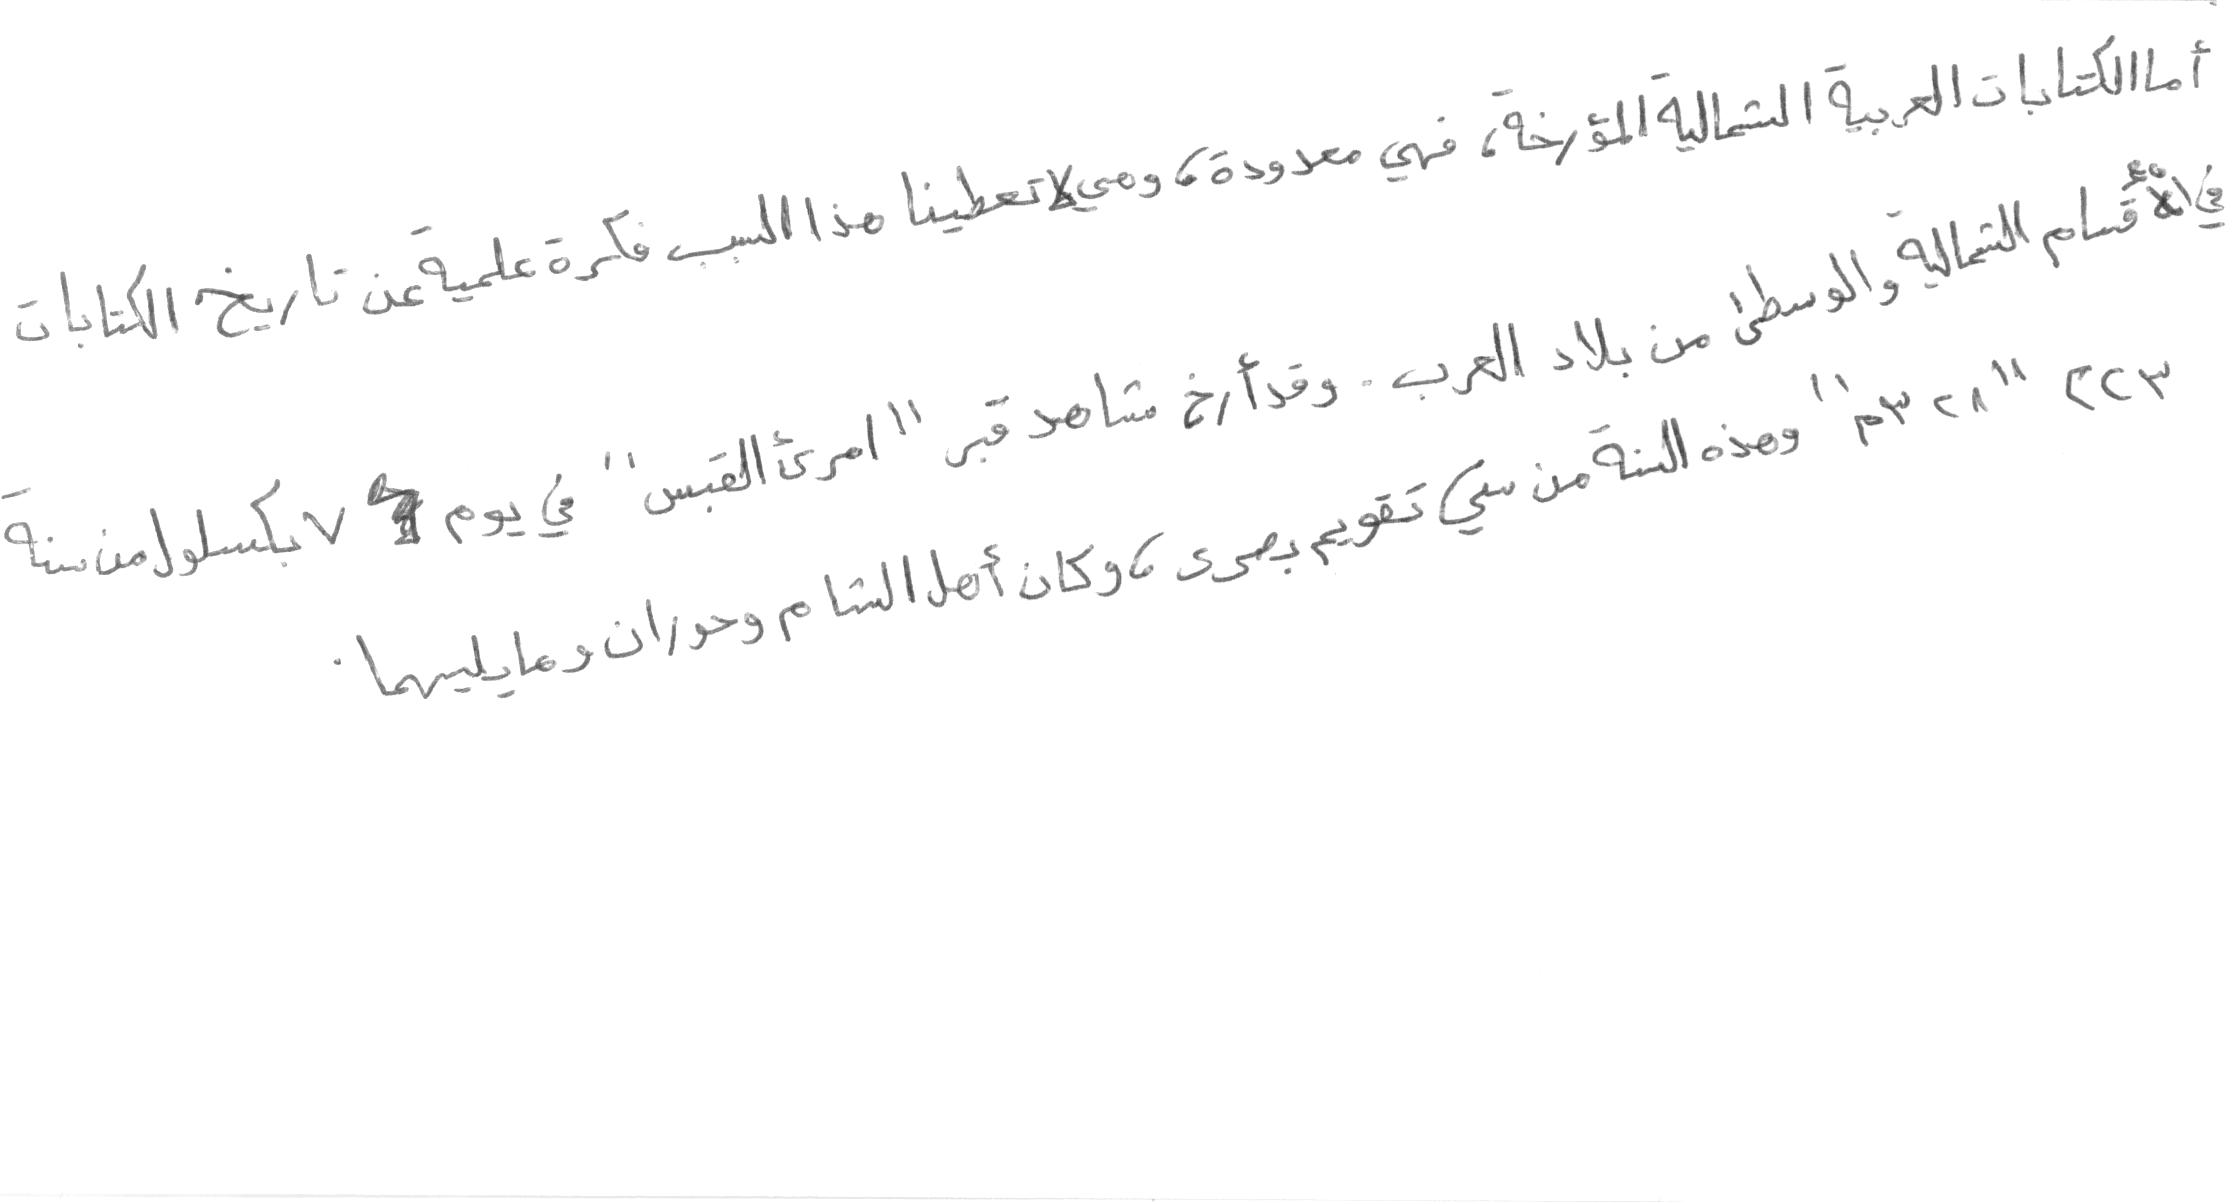 أما الكتابات العربية الشمالية المؤرخة، فهي معدودة، وهي لا تعطينا هذا السبب فكرة علمية عن تاريخ الكتابات
في الأقسام الشمالية والوسطى من بلاد العرب. وقد أرخ شاهد قبر "امرئ القيس" في يوم ٧ بكسلول من سنة
٢٢٣ "٣٢٨م" وهذه السنة من سي تقويم بصرى، وكان أهل الشام وحوران وما يليهما.